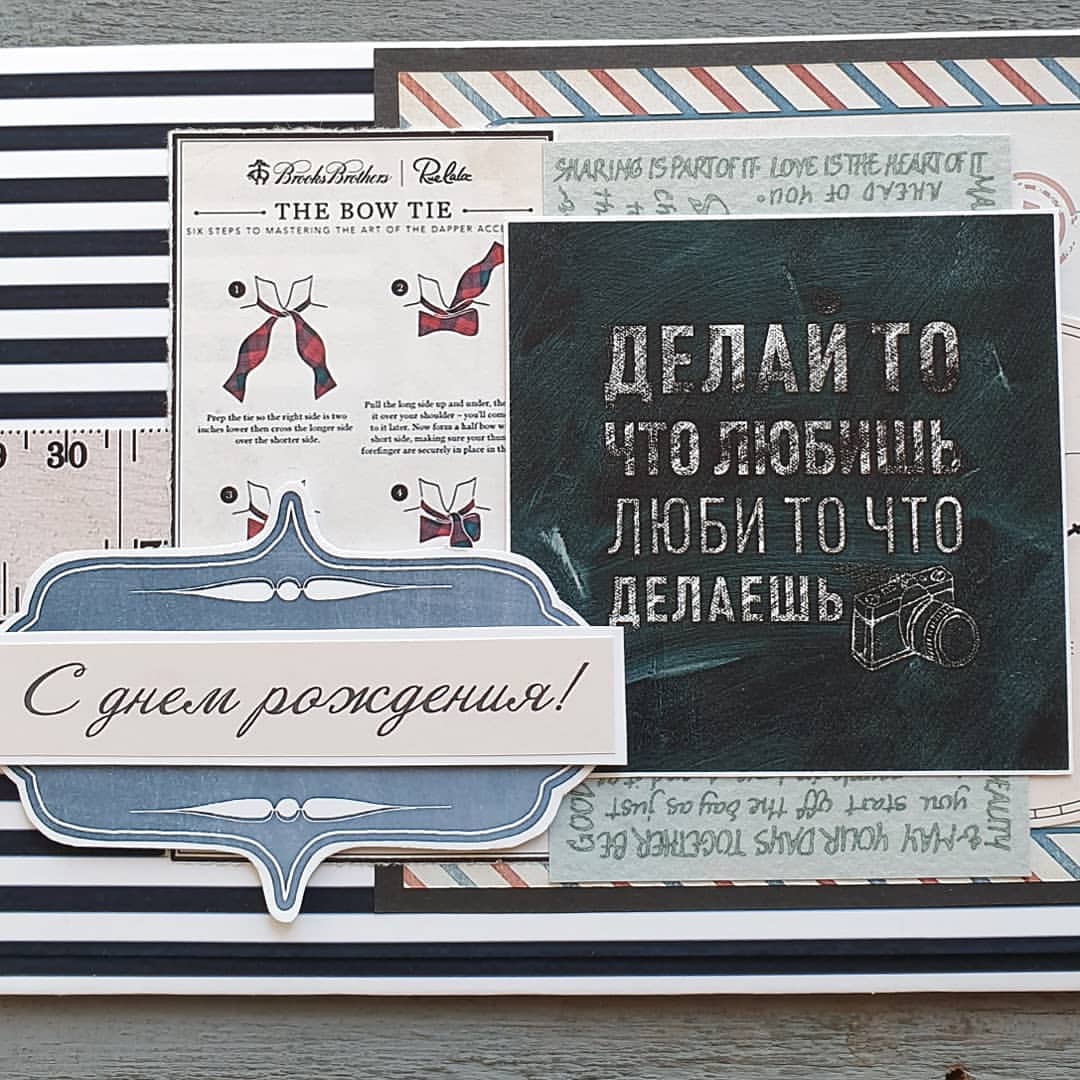 BrooksBrothers | Rue La La
THE BOW TIE
SIX STEPS TO MASTERING THE ART OF THE DAPPER ACCE
1
2
Prep the tie so the right side is two
inches lower then cross the longer side
over the shorter side.
Pull the long side up and under, the
it over your shoulder – you'll com
to it later. Now form a half bow w
short side, making sure your thu
forefinger are securely in place in th
3
4
30
SHARING IS PART OF IT. LOVE IS THE HEART OF IT
AHEAD OF YOU.
ДЕЛАЙ ТО
ЧТО ЛЮБИШЬ
ЛЮБИ ТО ЧТО
ДЕЛАЕШЬ
С днем рождения!
you start off the day as just
& MAY YOUR DAYS TOGETHER BE
GOOD